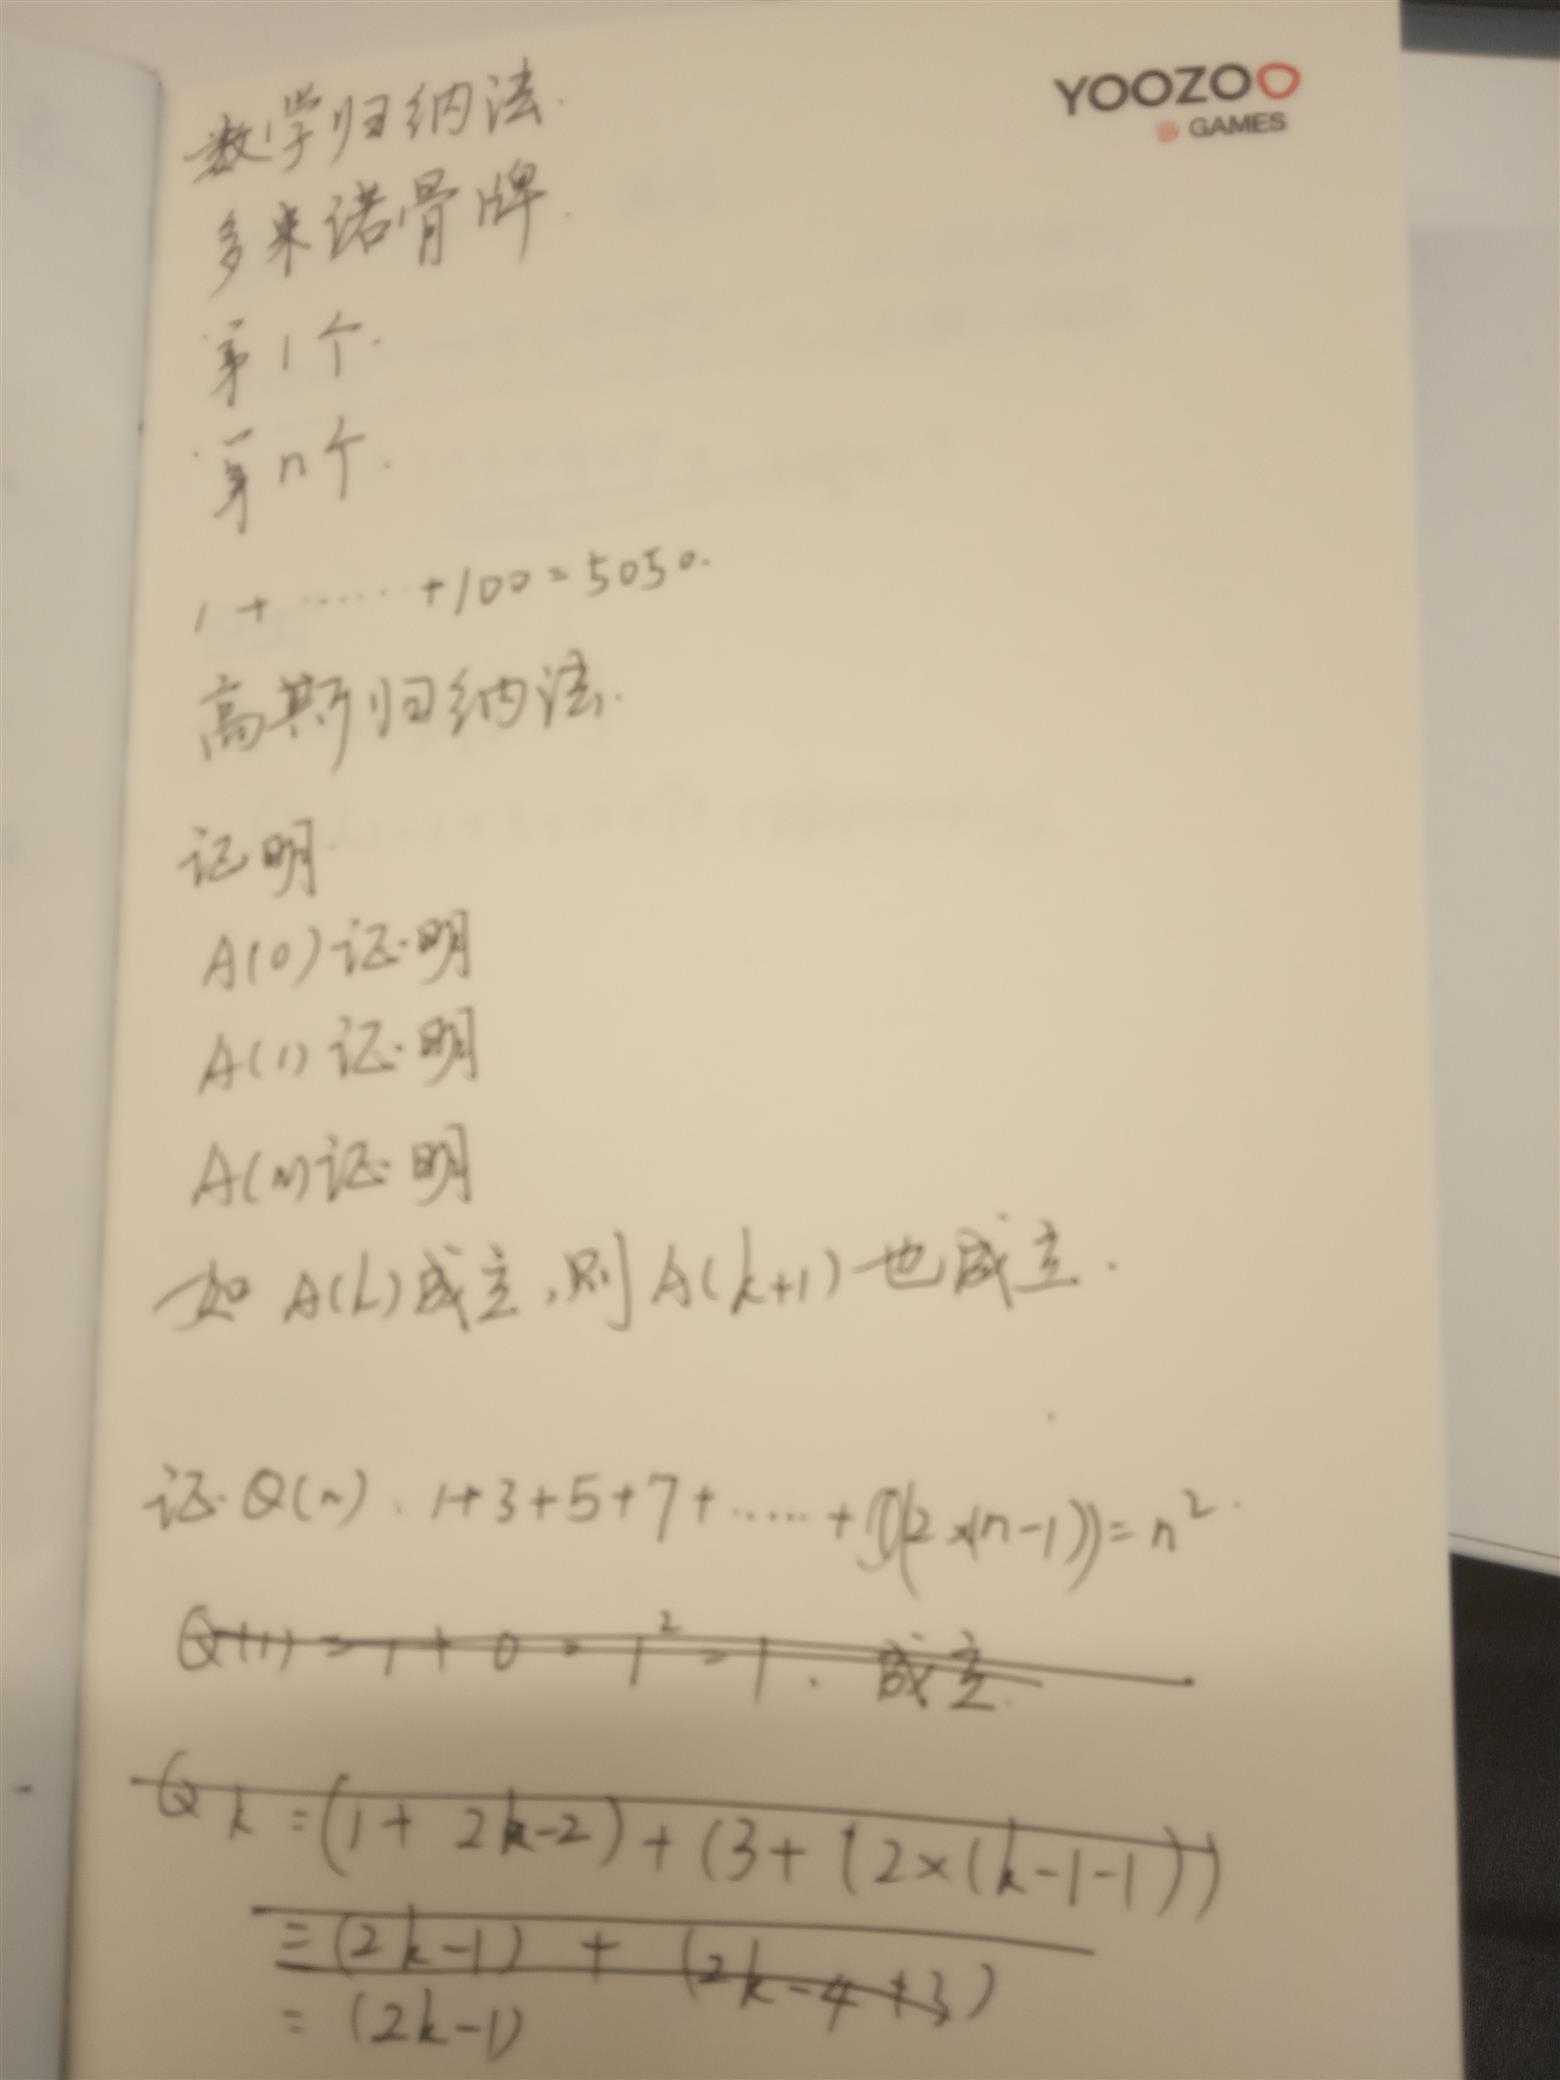 YOOZOO
GAMES
数学归纳法.
多米诺骨牌.
第1个.
第n个.
1+……+100=5050.
高斯归纳法.
证明
A(0)证明
A(1)证明
A(n)证明
如A(k)成立,则A(k+1)也成立.
证Q(n). 1+3+5+7+……+(2×(n-1))=n²
Q(1)=1+0=1²=1. 成立.
Qk=(1+2k-2)+(3+(2×(k-1-1))
=(2k-1)+(2k-4+3)
=(2k-1)